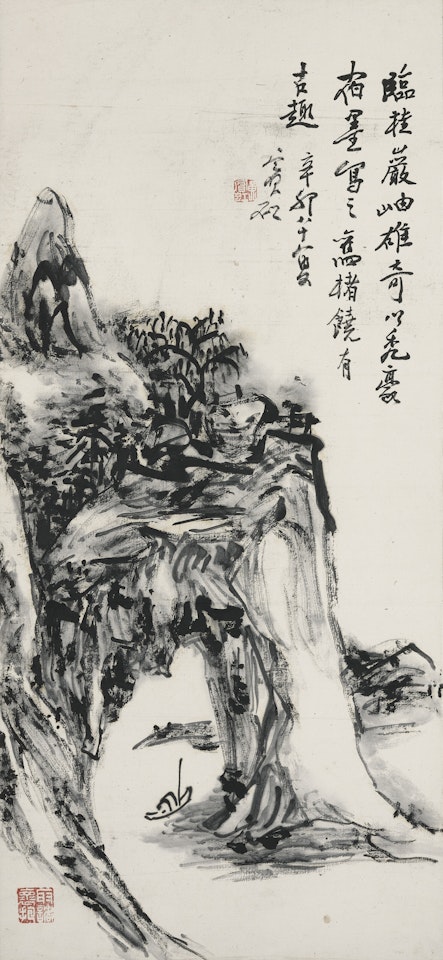 臨桂巖岫雄奇以禿豪
宿墨寫之舊楮饒有
古趣 辛卯八十八叟
賓虹